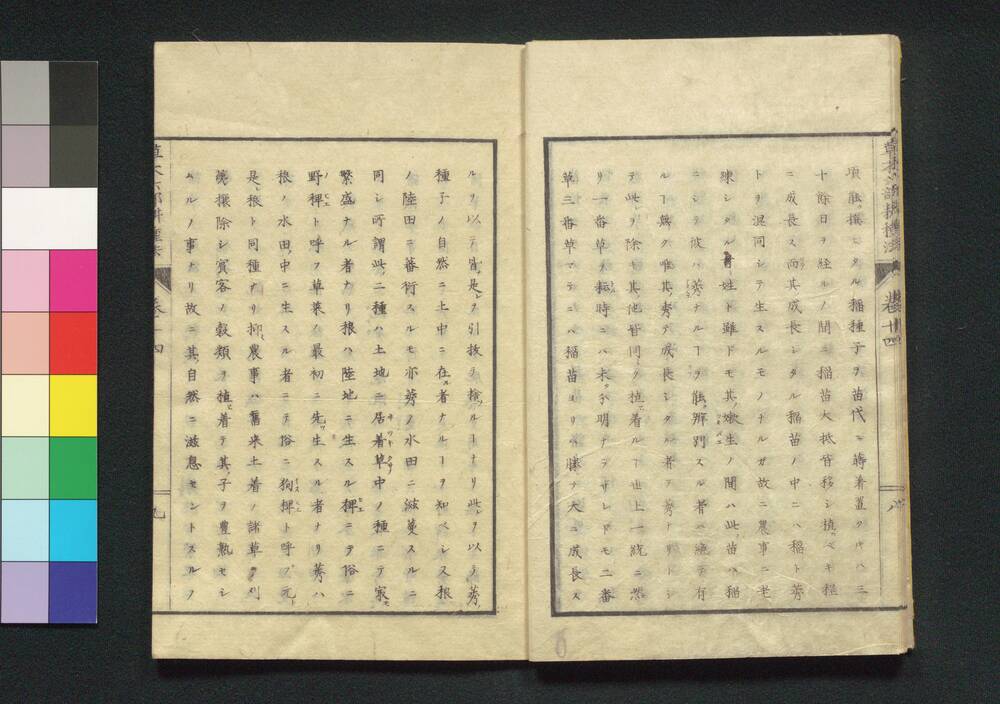 草木六部耕種法
巻十四
八
項ニ能撰ミタル稲種子ヲ苗代ニ蒔着置クトキハ三
十餘日ヲ経ルノ間ニ稲苗大抵皆移シ植ベキ程
ニ成長ス而其成長シタル稲苗ノ中ニハ稲ト莠
トヲ混同シテ生スルモノナルガ故ニ農事ニ老
練シタル百姓ト雖ドモ其嫩生ノ間ハ此苗ハ稲
ニシテ彼ハ莠ナルヿヲ能辨別スル者ハ絶テ有
ルヿ無ク唯其秀テ成長シタル者ヲ莠ナリトシ
テ此ヲ除キ其他皆同ク植着ルヿ世上一統ニ然
リ一番草ヲ耘時ニハ未タ分明ナラザレドモ二番
草三番草マテニハ稲苗ヨリハ勝テ大ニ成長ス
ルヲ以テ皆是ヲ引抜テ捨ルヿナリ此ヲ以テ莠
種子ノ自然ニ土中ニ在者ナルヿヲ知ベシ又根
ノ陸田ニ蕃衍スルモ亦莠ノ水田ニ滋蔓スルニ
同シ所謂此二種ハ土地ニ居着草中ノ種ニテ家
繁盛ナル者ナリ根ハ陸地ニ生スル稗ニテ俗ニ
野稗ト呼フ草菜ノ最初ニ先生スル者ナリ莠ハ
根ノ水田中ニ生スル者ニテ俗ニ狗稗ト呼ブ元
是根ト同種ナリ抑農事ハ舊来土着ノ諸草ヲ刈
攘除シ賓客ノ穀類ヲ植着テ其子ヲ豊熟セシ
ムルノ事ナリ故ニ其自然ニ滋息セントスルノ
草木六部耕種法
巻十四
九